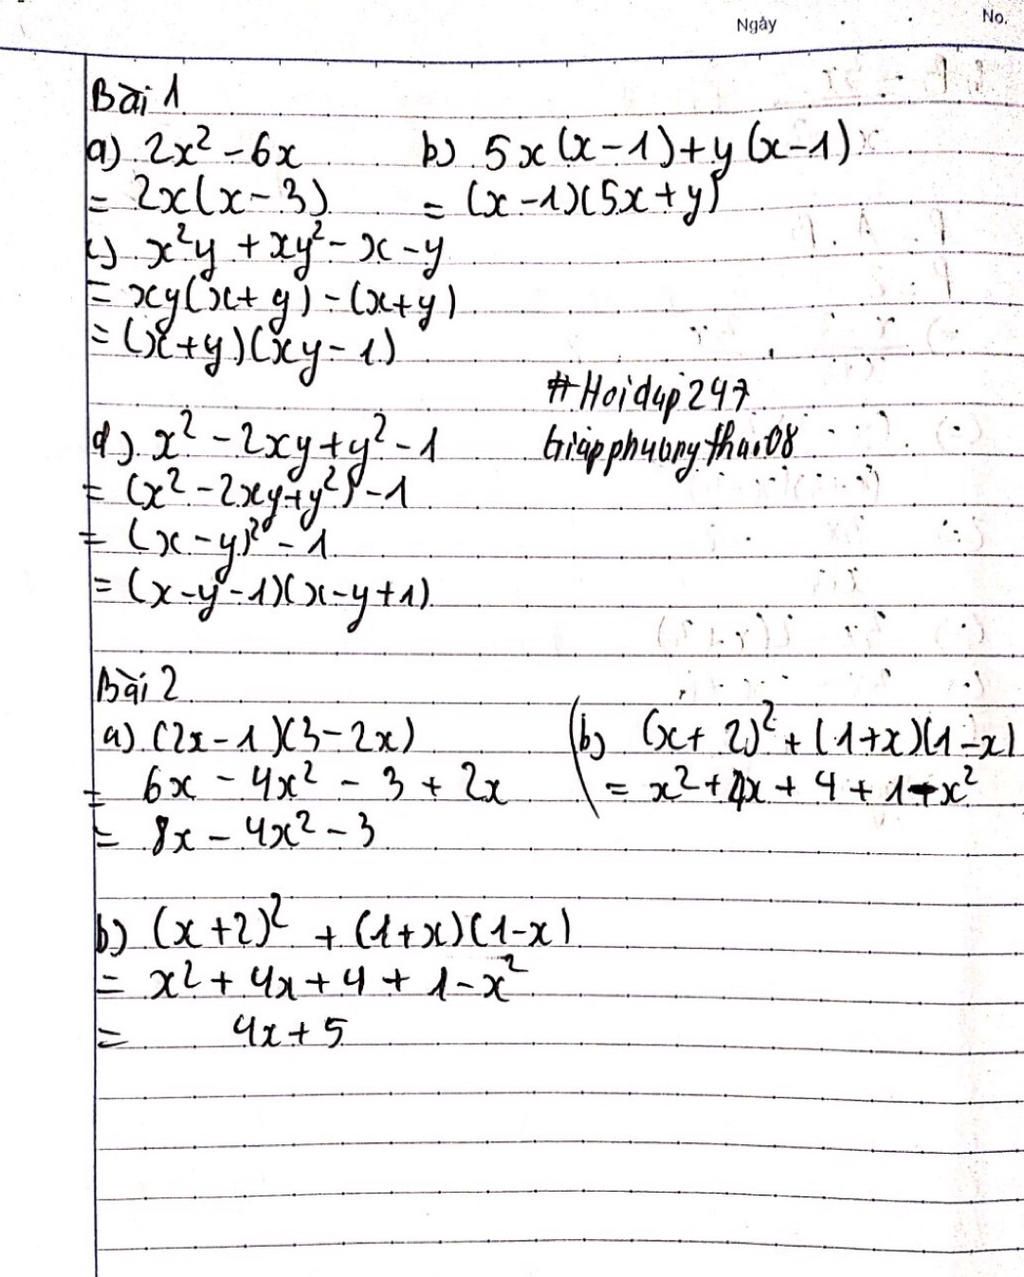 Ngày No.
Bài 1
a) 2x² - 6x b) 5x(x-1)+y(x-1)
= 2x(x-3) = (x-1)(5x+y)
c) x²y + xy² - x - y
= xy(x+y) - (x+y)
= (x+y)(xy-1)
#Hoidap247
giapphuongthao08
d) x² - 2xy + y² - 1
= (x² - 2xy + y²) - 1
= (x-y)² - 1
= (x-y-1)(x-y+1)
Bài 2
a) (2x-1)(3-2x) (b) (x+2)² + (1+x)(1-x)
= 6x - 4x² - 3 + 2x = x² + 4x + 4 + 1 - x²
= 8x - 4x² - 3
b) (x+2)² + (1+x)(1-x)
= x² + 4x + 4 + 1 - x²
= 4x + 5